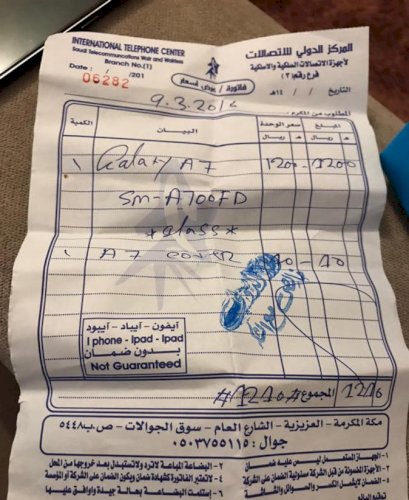 INTERNATIONAL TELEPHONE CENTER
Saudi Telecommunications Wair and Wairless
Branch No.(1)
Date : / /201
06282
المركز الدولي للاتصالات
لأجهزة الاتصالات السلكية واللاسلكية
فرع رقم (٢)
التاريخ / / ١٤هـ
فاتورة / عرض أسعار
9.3.2016
المطلوب من المكرم :
الكمية البيـــان سعر الوحدة المبلغ
هـ ريـال هـ ريـال
1 Galaxy A7 1200 - 1200
SM-A700FD
*glass*
1 A7 cover 10 - 10
آيفون - آيباد - آيبود
I phone - Ipad - Ipad
بدون ضمان
Not Guaranteed
المجموع #1210# 1210
مكة المكرمة - العزيزية - الشارع العام - سوق الجوالات - ص.ب ٥٤٤٨
جوال : ٠٥٠٣٧٥٥١١٥
١ - الجهاز المستعمل ليس عليه ضمان
٢ - البضاعة المباعة لا ترد ولا تستبدل بعد خروجها من المحل
٣ - الأجهزة المضمونة من قبل الشركة مسئولية الضمان على الشركة
٤ - لا تعتبر الفاتورة كشهادة ضمان ويكون الضمان على الشركة أو المؤسسة
٥ - الضمان لا يشمل الكسر والحريق والسوائل
٦ - استلمت البضاعة بحالة جيدة وأوافق عليها